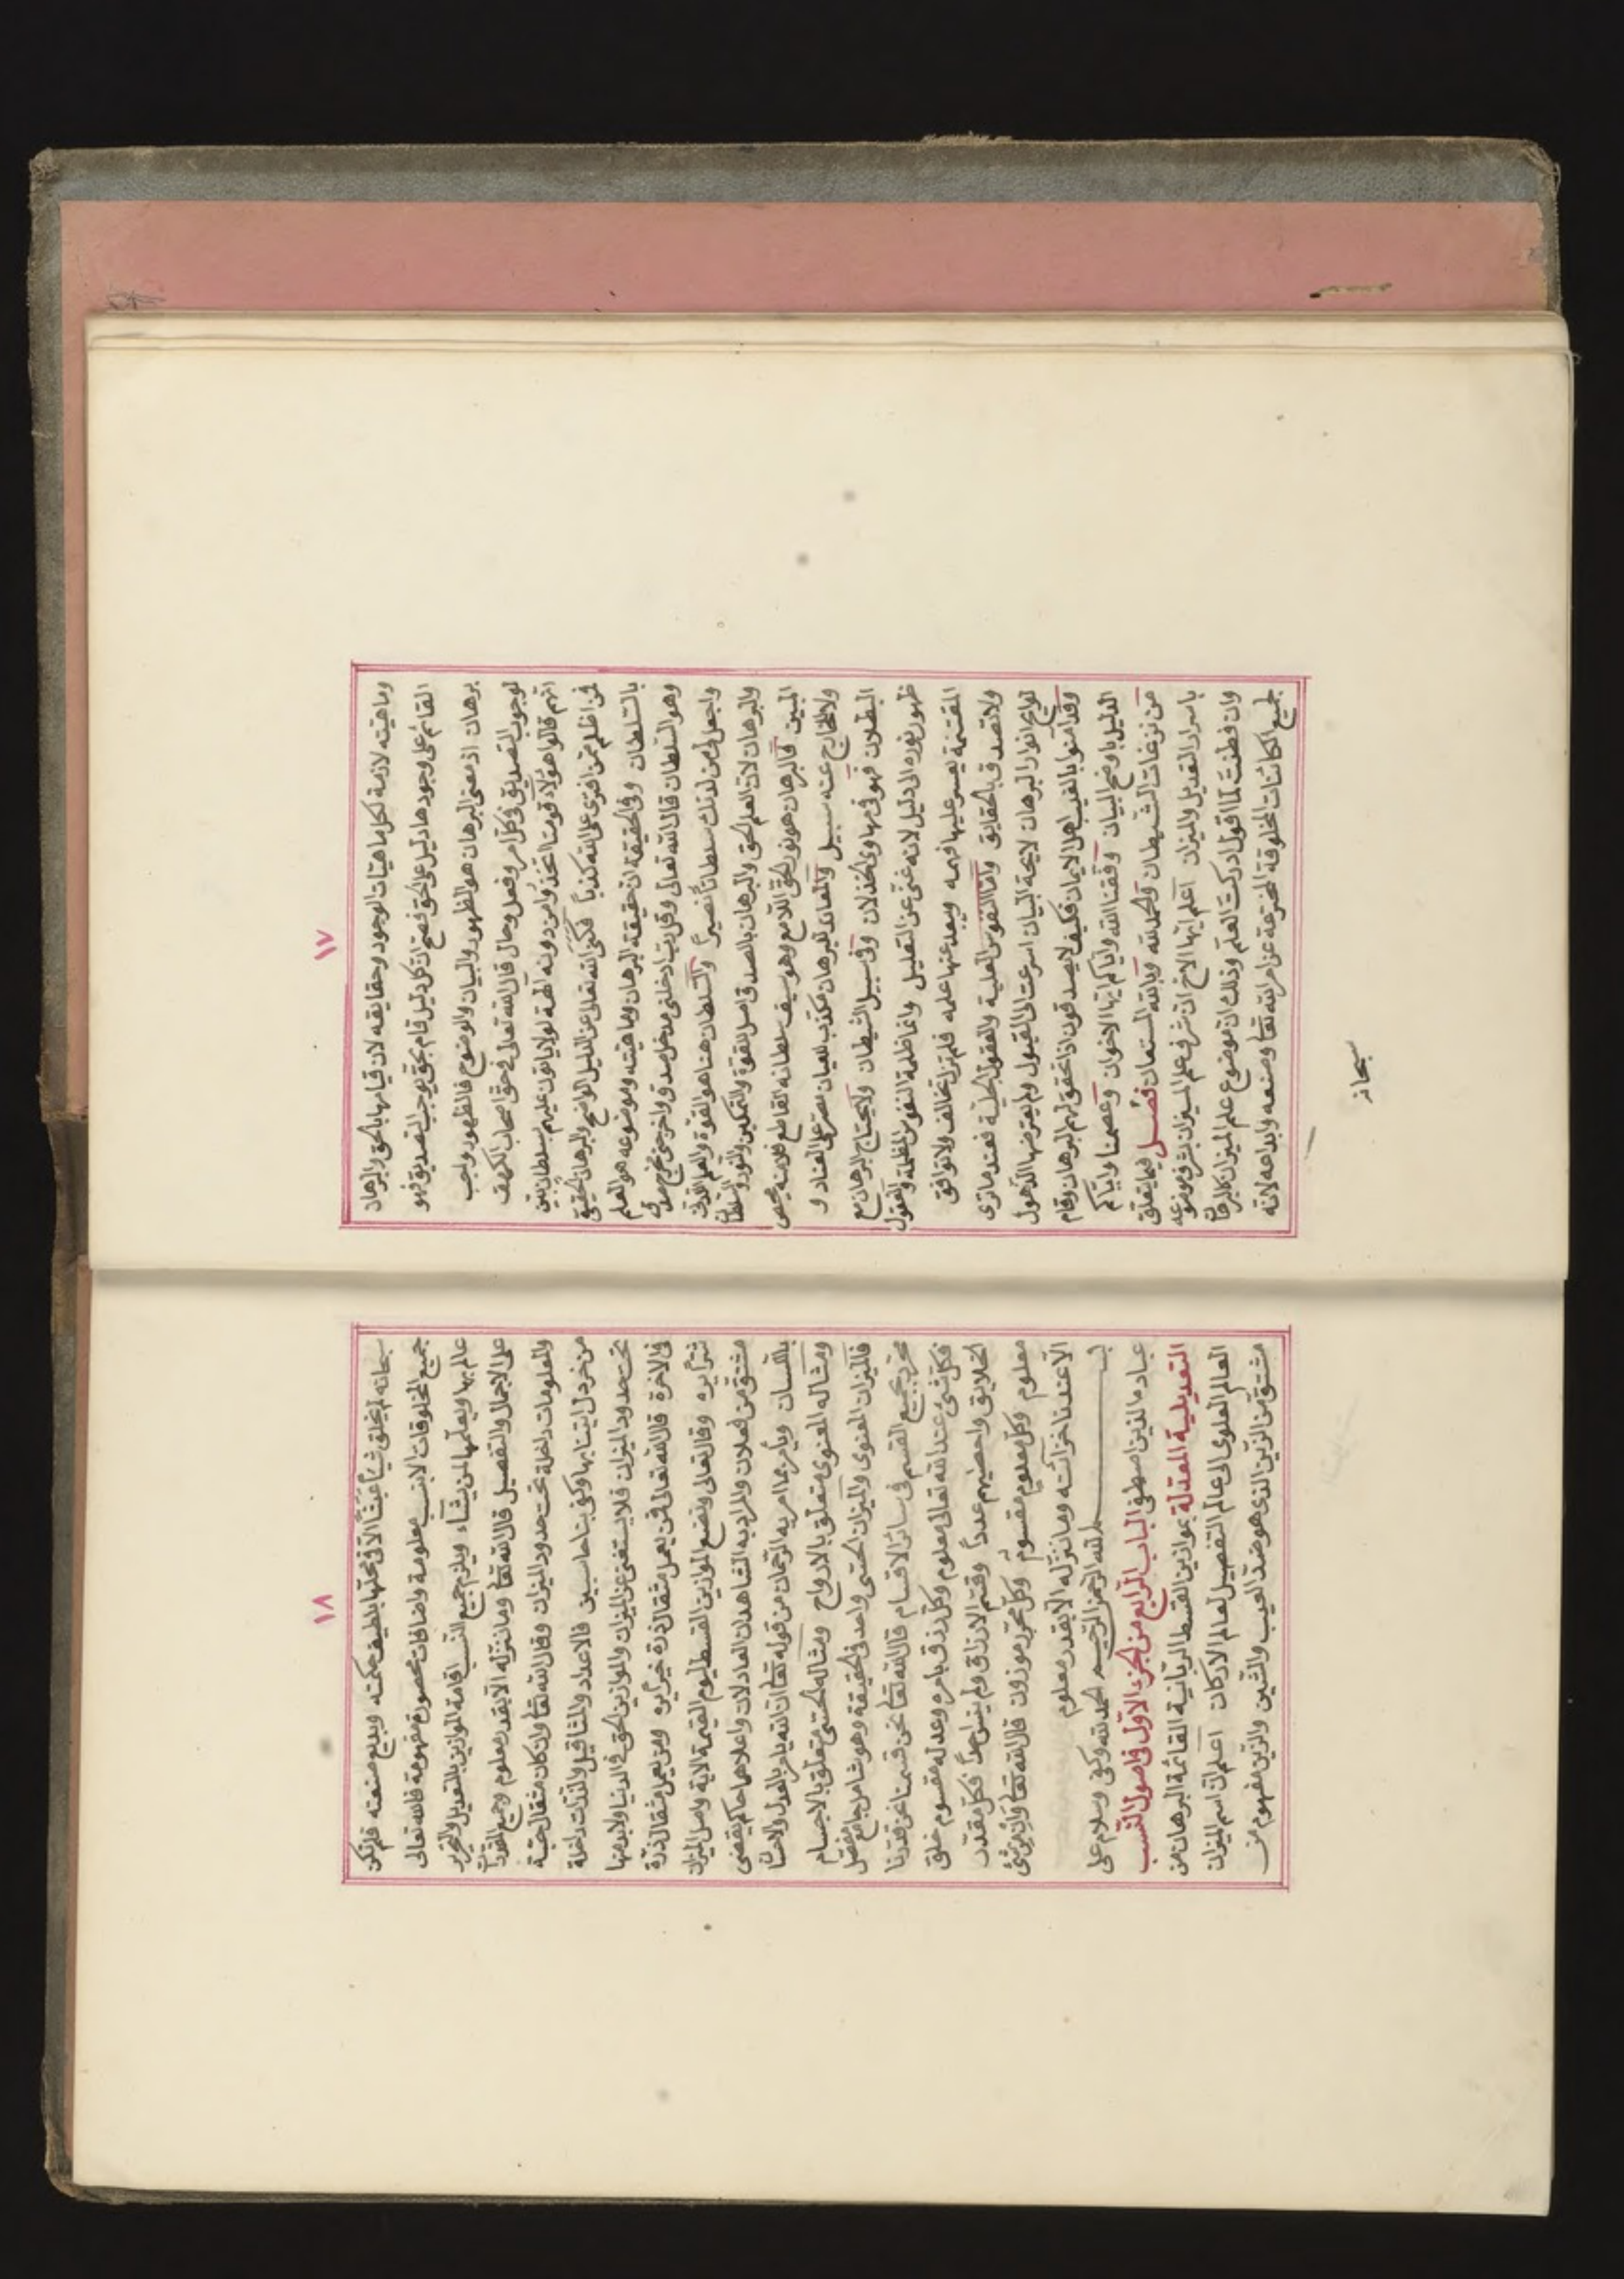 ١٧
وماهيته لازمة لكل ماهيات الوجود وحقايقه لان قيامها بالحق والبرهان
القائم على وجودها دليل على الحق فصح ان كل دليل قام بحق يوجب التصديق فهو
برهان اذ معنى البرهان هو الظهور والبيان والوضوح فالظهور واجب
لوجوب التصديق في كل امر وفعل وحال قال الله تعالى في حق اصحاب الكهف
انهم قالوا هؤلاء قومنا اتخذوا من دونه الهة لولا ياتون عليهم بسلطان بين
فمن اظلم ممن افترى على الله كذباً فكنى الله تعالى عن الدليل الواضح والبرهان الحقيقي
بالسلطان وفي الحقيقة ان حقيقة البرهان وماهيته وموضوعه هو العلم
وهو السلطان قال الله تعالى وقل رب ادخلني مدخل صدق واخرجني مخرج صدق
واجعل لي من لدنك سلطاناً نصيراً والسلطان هنا هو القوة والعلم اللدني
والبرهان لان العلم الحق والبرهان بالصدق اصل القوة والتمكين والنور والسلطان
المبين فالبرهان هو نور الحق اللامع وهو سيف سلطانه القاطع فلا منه محيص
ولا للخارج عنه سبيل والمعاند للبرهان مكذب للعيان مصر على العناد و
البطلان فهو في مهاوى الخذلان وفي سبيل الشيطان ولا يحتاج البرهان مع
ظهور نوره الى دليل لانه غني عن التعليل وانما ظلمة النفوس المظلمة والعقول
المقتمة يعسر عليها فهمه ويبعد عنها علمه فلم تزل تخالف ولا توافق
ولا تصدق بالحقايق واما النفوس العلية والعقول الجلية فعند ما ترى
لوايح انوار البرهان لايحة البيان اسرعت الى القبول ولم يعترضها الذهول
وقد امنوا بالغيب اهل الايمان فكيف لا يصدقون اذا تحقق لهم البرهان وقام
الدليل باوضح البيان وفقنا الله واياكم ايها الاخوان وعصمنا واياكم
من نزغات الشيطان والحمد لله وبالله المستعان فصل فيما يتعلق
باسرار التعديل والميزان اعلم ايها الاخ ان شرف علم الميزان بشرف موضوعه
وان فطنت لما اقول ادركت العلم وذلك ان موضوع علم الميزان كالبرهان
لجميع الكائنات المخلوقة المخترعة عن امر الله تعا وصنعه وابداعه لانه
سبحانه
١٨
سبحانه لم يخلق شيئاً عبثاً الا في محلها بلطيف حكمته وبديع صنعته فلم تكن
جميع المخلوقات الا بنسب معلومة واضافات محصورة مفهومة فالله تعالى
عالم بها ويعلمها لمن يشاء ويلزم جميع النسب اقامة الموازين بالتعديل والتحرير
على الاجمال والتفصيل قال الله تعا وما ننزله الا بقدر معلوم وجميع المقدرات
والمعلومات داخلة تحت حدود الميزان وقال الله تعا وان كان مثقال حبة
من خردل اتينا بها وكفى بنا حاسبين فالاعداد والمثاقيل والذرات داخلة
تحت حدود الميزان فلا يستغنى عن الميزان والموازين الحق في الدنيا ولا بد منها
في الاخرة قال الله تعالى فمن يعمل مثقال ذرة خيراً يره ومن يعمل مثقال ذرة
شراً يره وقال تعالى ونضع الموازين القسط ليوم القيمة الاية واصل الميزان
مشتق من فعلان والمراد به الشاهدان العادلان واعلاها حاكم يقضى
بلسان ويأمر بما امر به الرحمان من قوله تعا ان الله يامر بالعدل والاحسان
ومثاله المعنوى متعلق بالارواح ومثاله الحسى متعلق بالاجسام
فالميزان المعنوى والميزان الحسى واحد في الحقيقة وهو شامل جامع مفصل
محرر بجميع القسم في سائر الاقسام قال الله تعا نحن قسمنا نحن قدرنا
فكل شئ عند الله تعالى معلوم وكل رزق بامره وعدله مقسوم خلق
الخلايق واحصيهم عدداً وقسم الارزاق ولم ينس احداً فكل مقدر
معلوم وكل معلوم مقسوم وكل محرر موزون قال الله تعا وان من شئ
الا عندنا خزائنه وما ننزله الا بقدر معلوم
بسم الله الرحمن الرحيم الحمد لله وكفى وسلام على
عباده الذين اصطفى الباب الرابع من الجزء الاول في اصول النسب
التعديلية المعدلة بموازين القسط الربانية القائمة البرهان من
العالم العلوى الى عالم التفصيل لعالم الاركان اعلم ان اسم الميزان
مشتق من الزين الذى هو ضد العيب والشين والزين مفهوم من